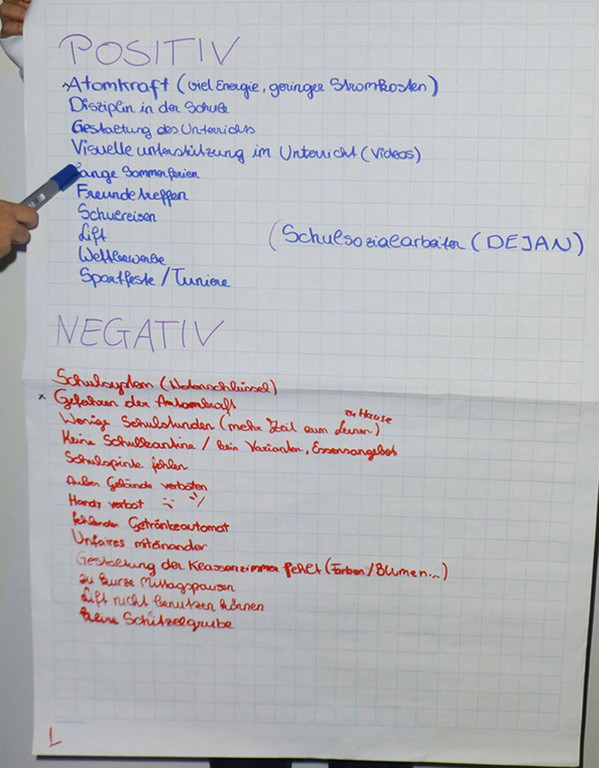 POSITIV
Atomkraft (viel Energie, geringer Stromkosten)
Disziplin in der Schule
Gestaltung des Unterrichts
Visuelle unterstützung im Unterricht (Videos)
lange Sommerferien
Freunde treffen
Schulreisen
Lift
(Schulsozialarbeiter (DEJAN)
Wettbewerbe
Sportfeste / Tuniere
NEGATIV
Schulsystem (Notenschlüssel)
x Gefahren der Antomkraft
zu Hause
Wenige Schulstunden (mehr Zeit zum Lernen)
Keine Schulkantine / kein Varianten, Essensangebot
Schulspinte fehlen
Außen Gelände verboten
Handy verbot
fehlender Getränkeautomat
Unfaires miteinander
Gestaltung der Klassenzimmer fehlt (Farben/Blumen...)
zu kurze Mittagspausen
Lift nicht benutzen können
keine Schnitzelgrube
L